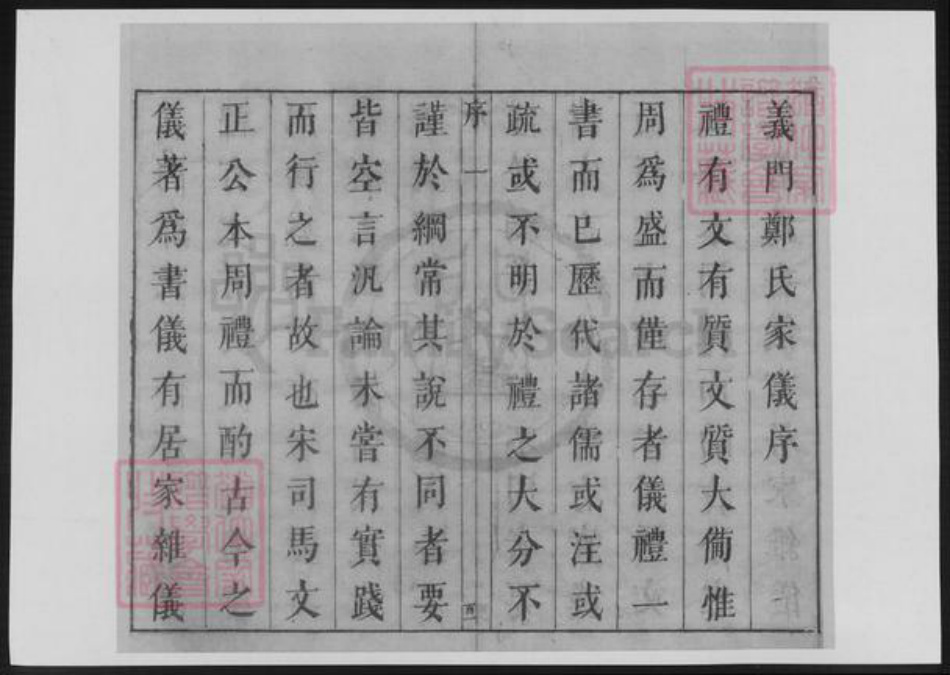 義門鄭氏家儀序
禮有文有質文質大備惟
周爲盛而僅存者儀禮一
書而已歷代諸儒或注或
疏或不明於禮之大分不
序 一
謹於綱常其說不同者要
皆空言汎論未嘗有實踐
而行之者故也宋司馬文
正公本周禮而酌古今之
儀著爲書儀有居家雜儀
FamilySearch